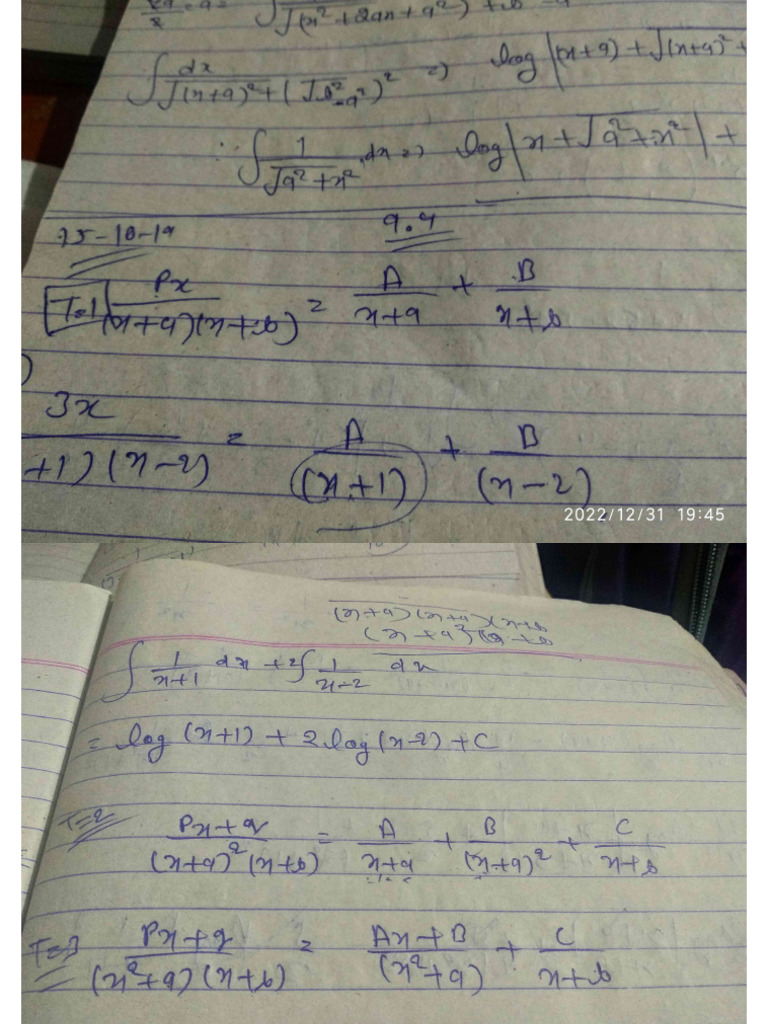 ∫ 1/√(x²+2ax+a²)
∫ dx/√((x+a)²+(√b²-a²)²) => log|(x+a)+√(x+a)²+
∵ ∫ 1/√(a²+x²) .dx => log|x+√(a²+x²)|+
15-10-19 9.4
T=1 Px/(x+a)(x+b) = A/(x+a) + B/(x+b)
)
3x/+1)(x-2) = A/(x+1) + B/(x-2)
2022/12/31 19:45
(x+a)(x+a)(x+b
(x+a)²(x+b
∫ 1/(x+1) dx + 2∫ 1/(x-2) dx
= log(x+1) + 2log(x-2) + C
T=2
Px+q/(x+a)²(x+b) = A/(x+a) + B/(x+a)² + C/(x+b)
T=3 Px+q/(x²+a)(x+b) = Ax+B/(x²+a) + C/(x+b)